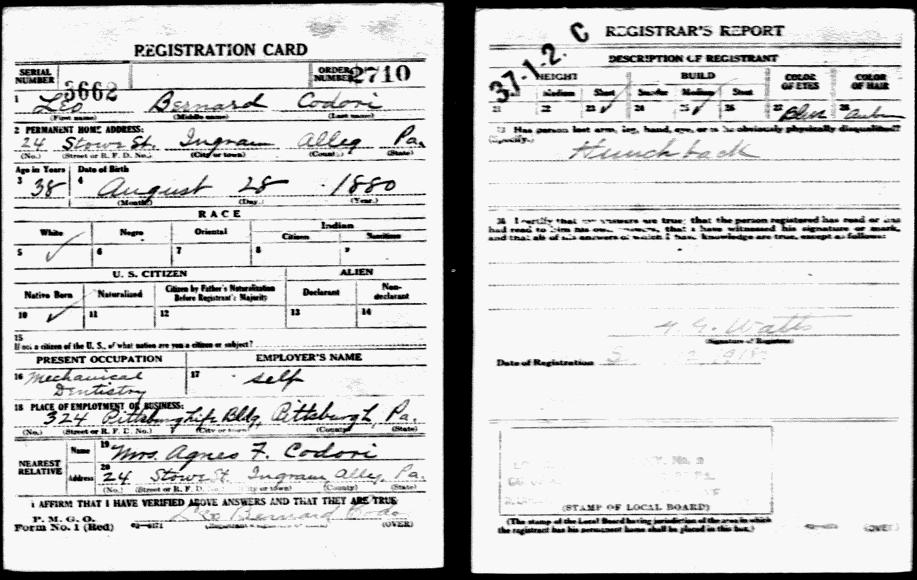 REGISTRATION CARD
SERIAL NUMBER 3662 ORDER NUMBER 2710
1 Leo Bernard Codori
(First name) (Middle name) (Last name)
2 PERMANENT HOME ADDRESS:
24 Stowe St. Ingram Alleg Pa.
(No.) (Street or R. F. D. No.) (City or town) (County) (State)
Age in Years Date of Birth
3 38 4 August 28 1880
(Month) (Day.) (Year.)
RACE
White Negro Oriental Indian
Citizen
5 ✓ 6 7 8 9
U. S. CITIZEN ALIEN
Native Born Naturalized Citizen by Father's Naturalization Before Registrant's Majority Declarant Non-declarant
10 ✓ 11 12 13 14
15
If not a citizen of the U. S., of what nation are you a citizen or subject?
PRESENT OCCUPATION EMPLOYER'S NAME
16 Mechanical Dentistry 17 self
18 PLACE OF EMPLOYMENT OR BUSINESS:
324 Pittsburgh Life Bldg, Pittsburgh, Pa.
(No.) (Street or R. F. D. No.) (City or town) (County) (State)
NEAREST RELATIVE Name 19 Mrs. Agnes F. Codori
Address 20 24 Stowe St. Ingram, Alleg, Pa.
(No.) (Street or R. F. D. No.) (City or town) (County) (State)
I AFFIRM THAT I HAVE VERIFIED ABOVE ANSWERS AND THAT THEY ARE TRUE
P. M. G. O. Leo Bernard Codo
Form No. 1 (Red) (OVER)
37-1-2. C REGISTRAR'S REPORT
DESCRIPTION OF REGISTRANT
HEIGHT BUILD COLOR OF EYES COLOR OF HAIR
Medium Short Slender Medium Stout
21 22 23 ✓ 24 25 ✓ 26 27 Blue 28 Auburn
29 Has person lost arm, leg, hand, eye, or is he obviously physically disqualified?
(Specify.)
Hunchback
30 I certify that my answers are true; that the person registered has read or has
had read to him his own answers, that I have witnessed his signature or mark,
and that all of his answers of which I have knowledge are true, except as follows:
Watts
(Signature of Registrar)
Date of Registration
(STAMP OF LOCAL BOARD)
(The stamp of the Local Board having jurisdiction of the area in which
the registrant has his permanent home shall be placed in this box.)
(OVER)